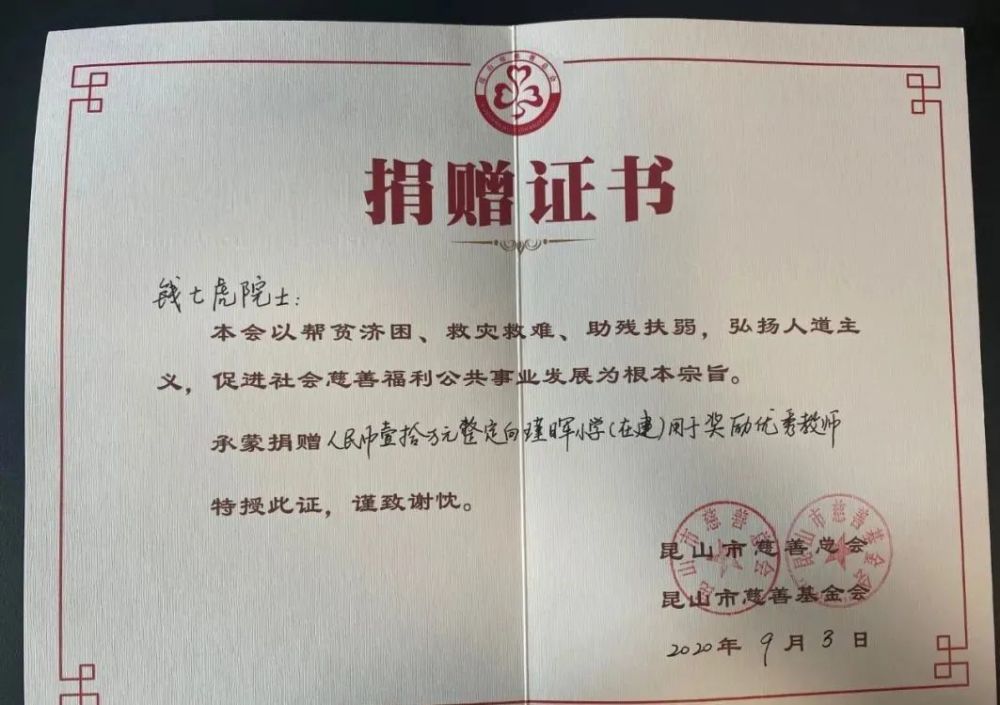 昆山市慈善总会
捐赠证书
钱七虎院士：
本会以帮贫济困、救灾救难、助残扶弱，弘扬人道主
义，促进社会慈善福利公共事业发展为根本宗旨。
承蒙捐赠人民币壹拾万元整定向瑾晖小学（在建）用于奖励优秀教师
特授此证，谨致谢忱。
昆山市慈善总会
昆山市慈善总会
昆山市慈善基金会
昆山市慈善基金会
2020年9月3日